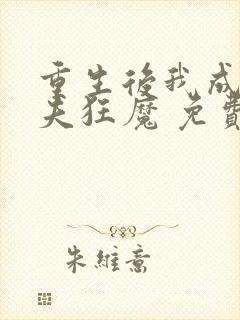 重生後我成
夫狂魔 免費
朱維意